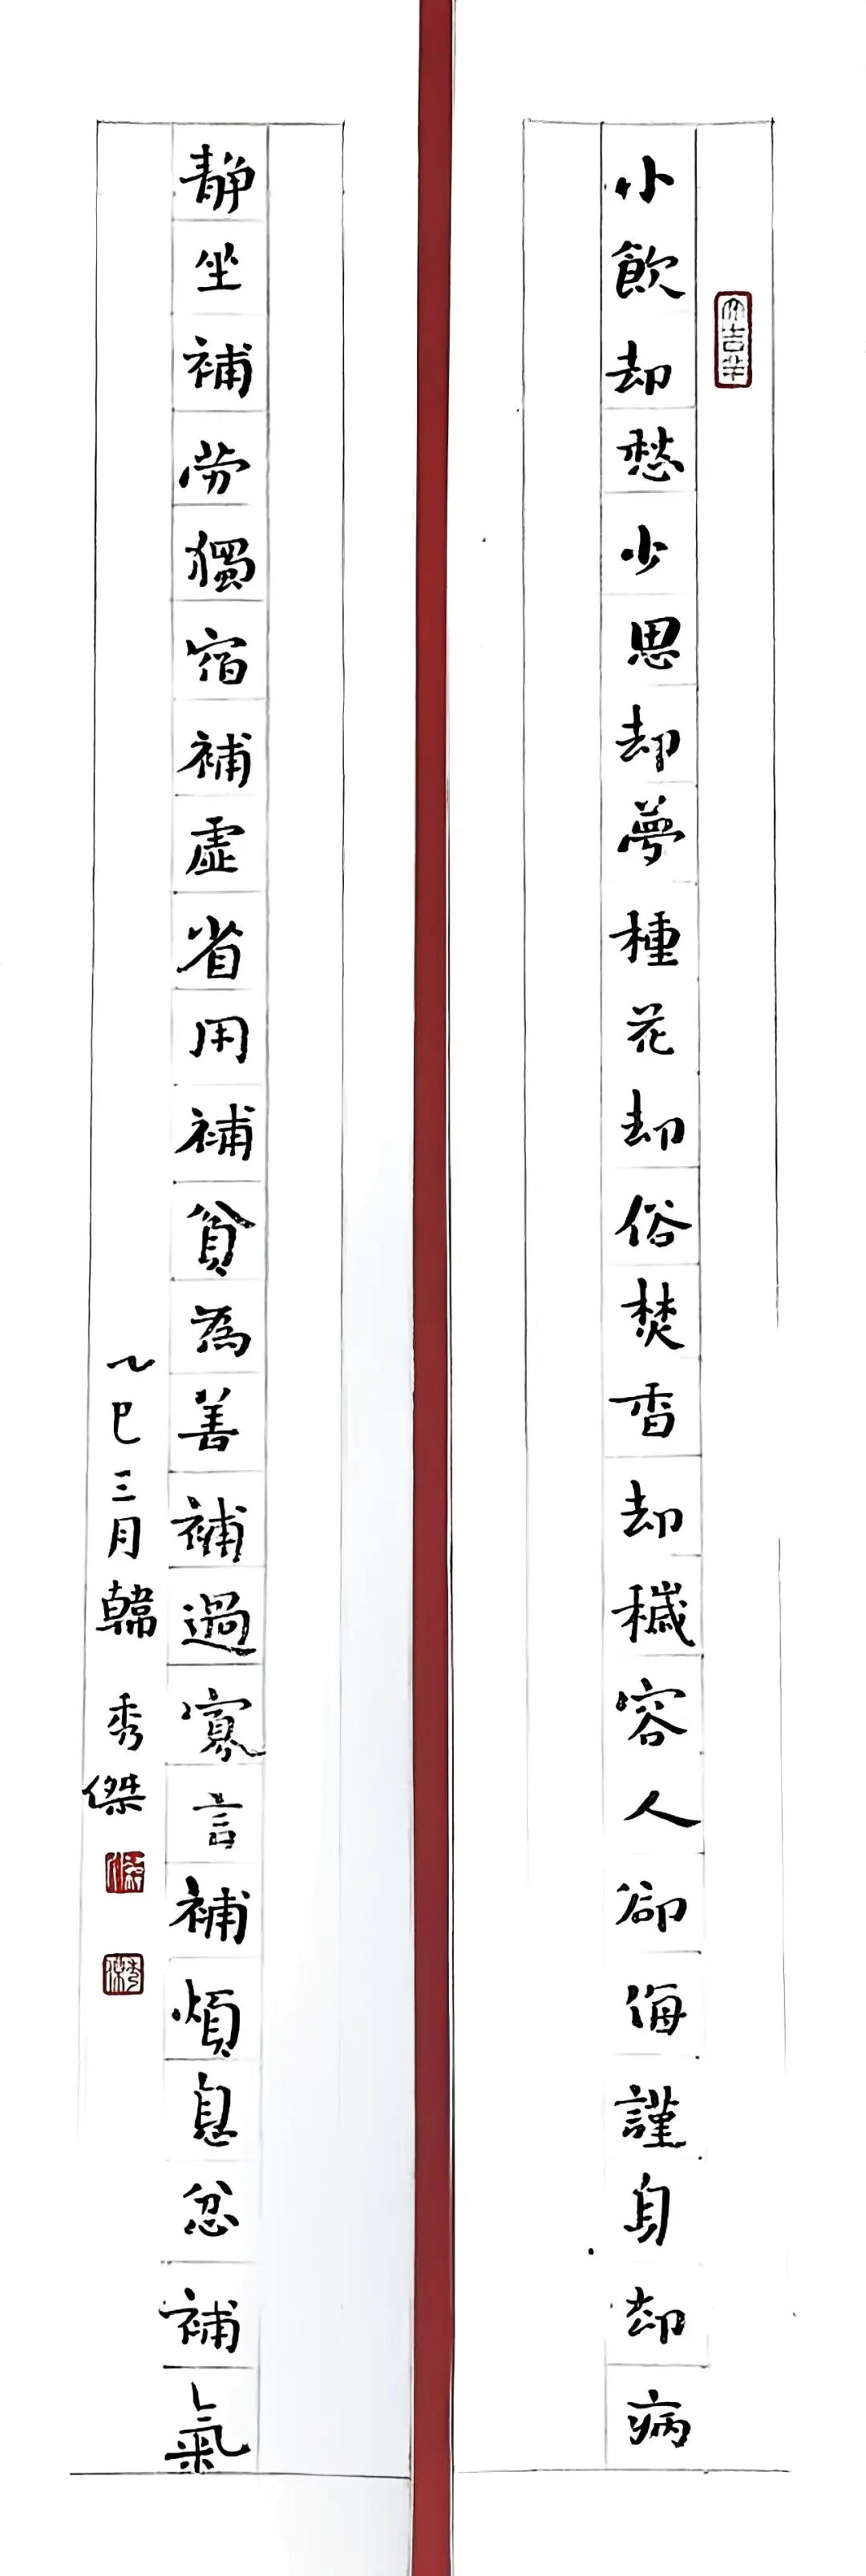 小飲却愁少思却夢種花却俗焚香却穢容人卻侮謹身却病
静坐補勞獨宿補虛省用補貧為善補過寡言補煩息忿補氣
乙巳三月韓秀傑